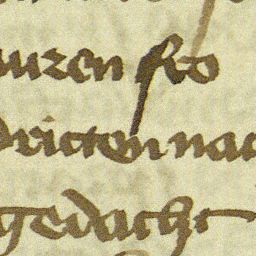 uren fro
dritten nac
gedacht